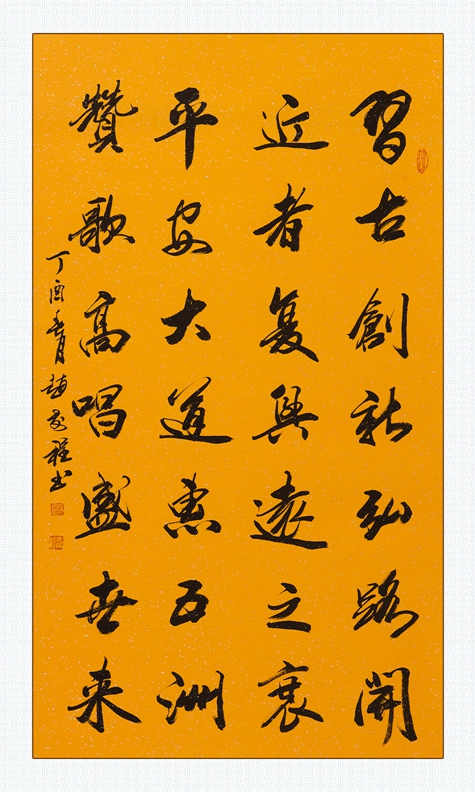 習古創新弘路開
近者复興遠之衰
平安大道惠五洲
贊歌高唱盛世来
丁酉春月趙程书